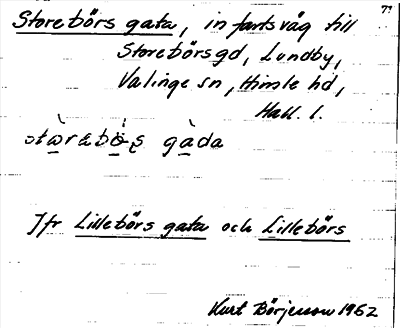 Storebörs gata, infartsväg till
Storebörsgd, Lundby,
Valinge sn, Himle hd,
Hall. l.
Jfr Lillebörs gata och Lillebörs
Kurt Börjesson 1962